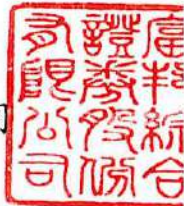 富邦綜合
證券股份
有限公司